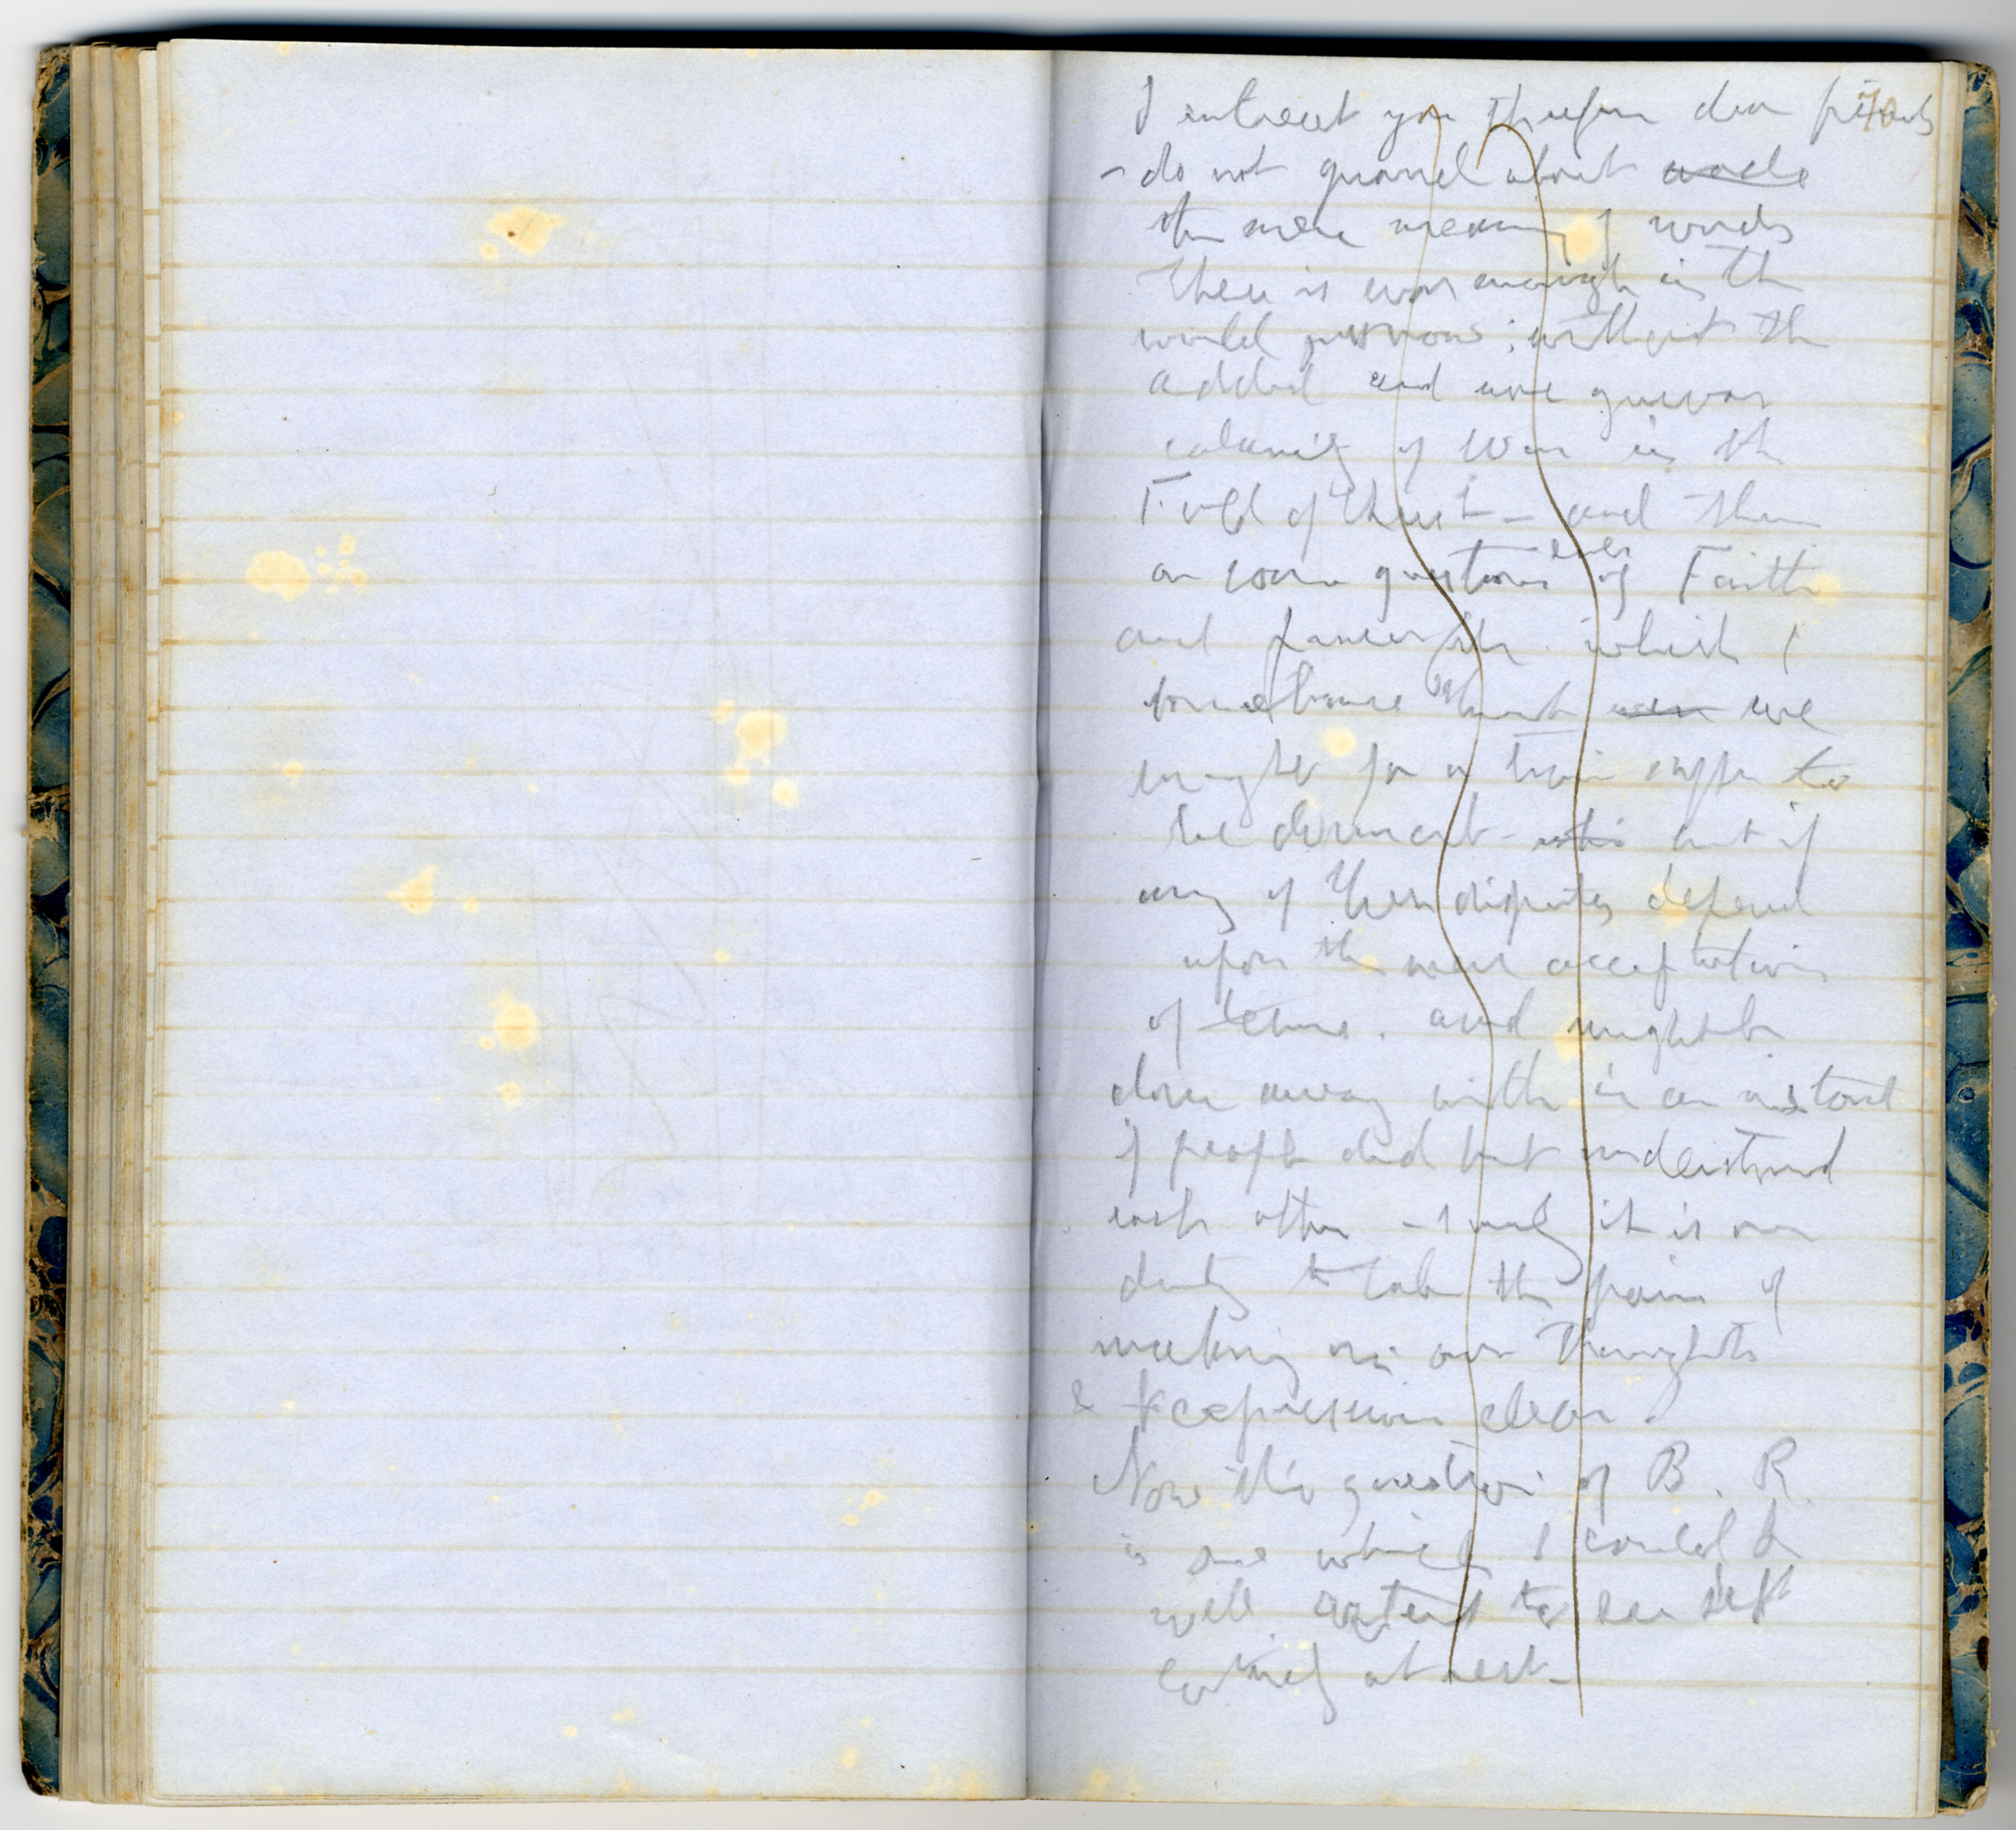 70
I entreat you therefore dear friends
- do not quarrel about words
the mere meaning of words
There is war enough in the
world just now; without the
added and more grievous
calamity of war in the
Fold of Christ - and there
are some questions even of Faith
and which I
sometimes think were we
might for a time suffer to
be dormant - but if
any of these disputes depend
upon the mere acceptation
of terms. and might be
done away with in an instant
if people did but understand
each other - surely it is our
duty to take the pains of
making our thoughts
& expression clear.
Now this question of B. R.
is one which I could
well to see left
entirely at rest -